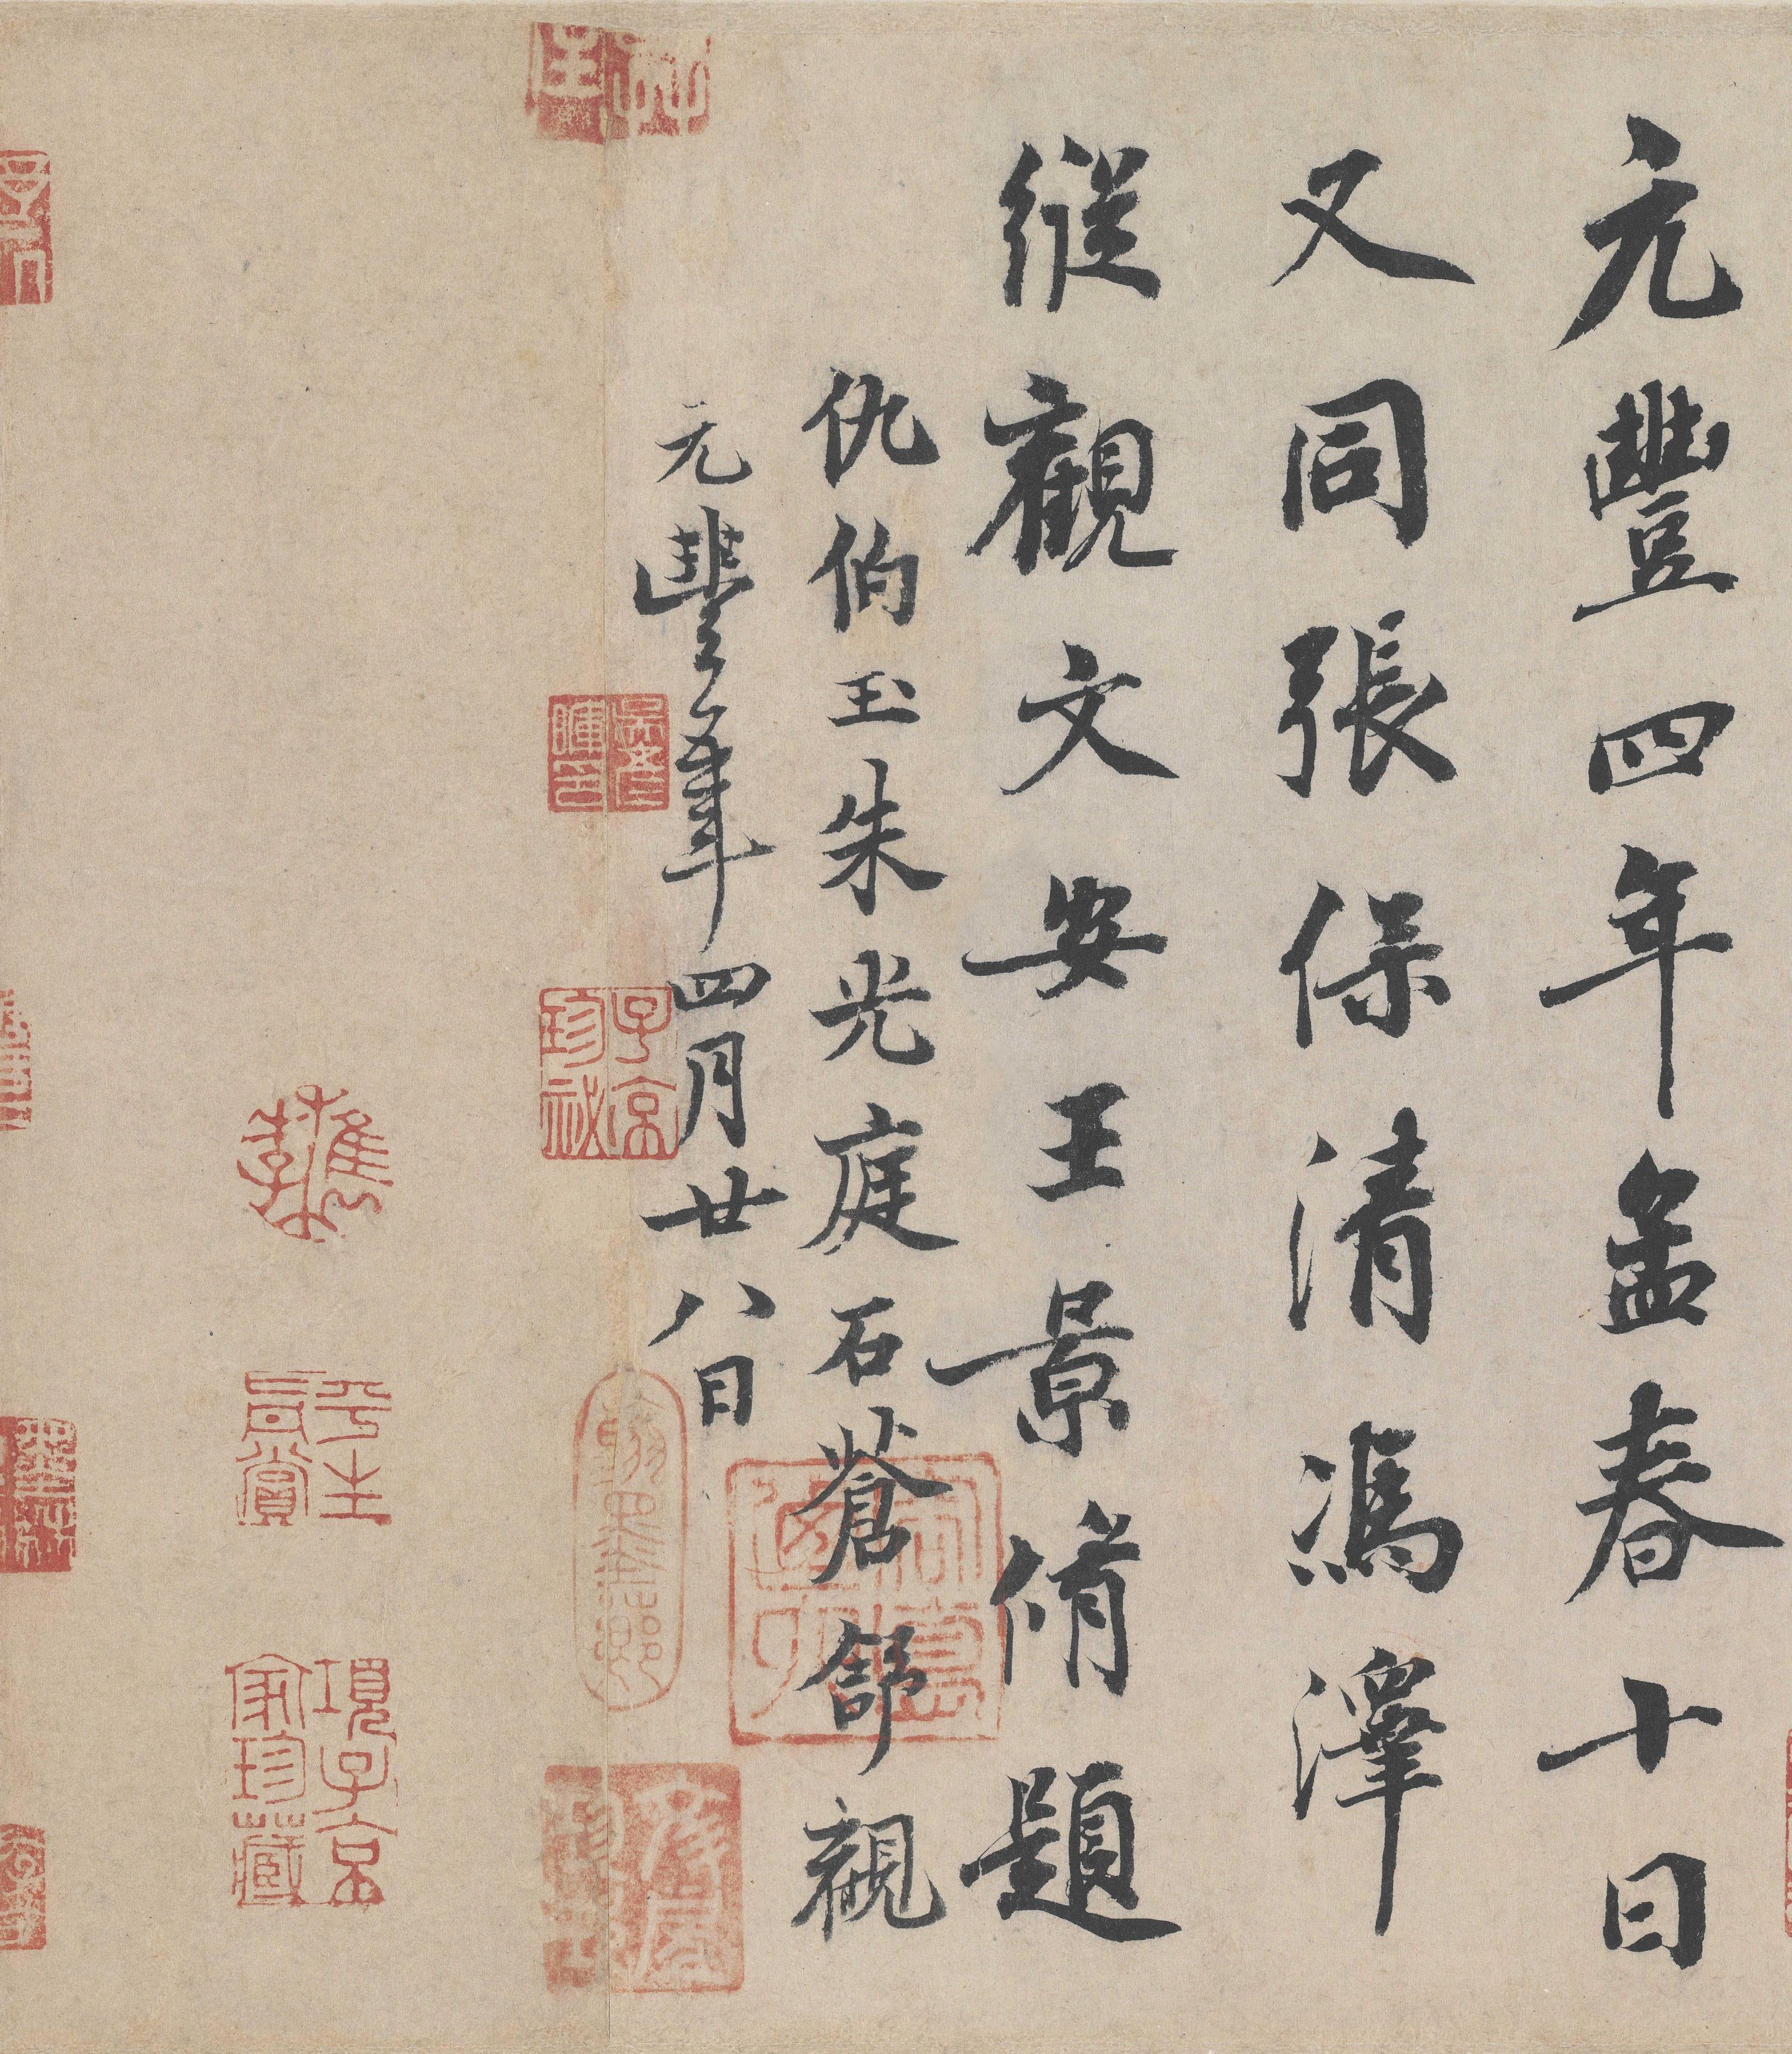 元豐四年孟春十日
又同張保清馮澤
縱觀文安王景脩題
仇伯玉朱光庭石蒼舒觀
元豐五年四月廿八日
子京珍祕
檇李
平生真賞
項子京家珍藏